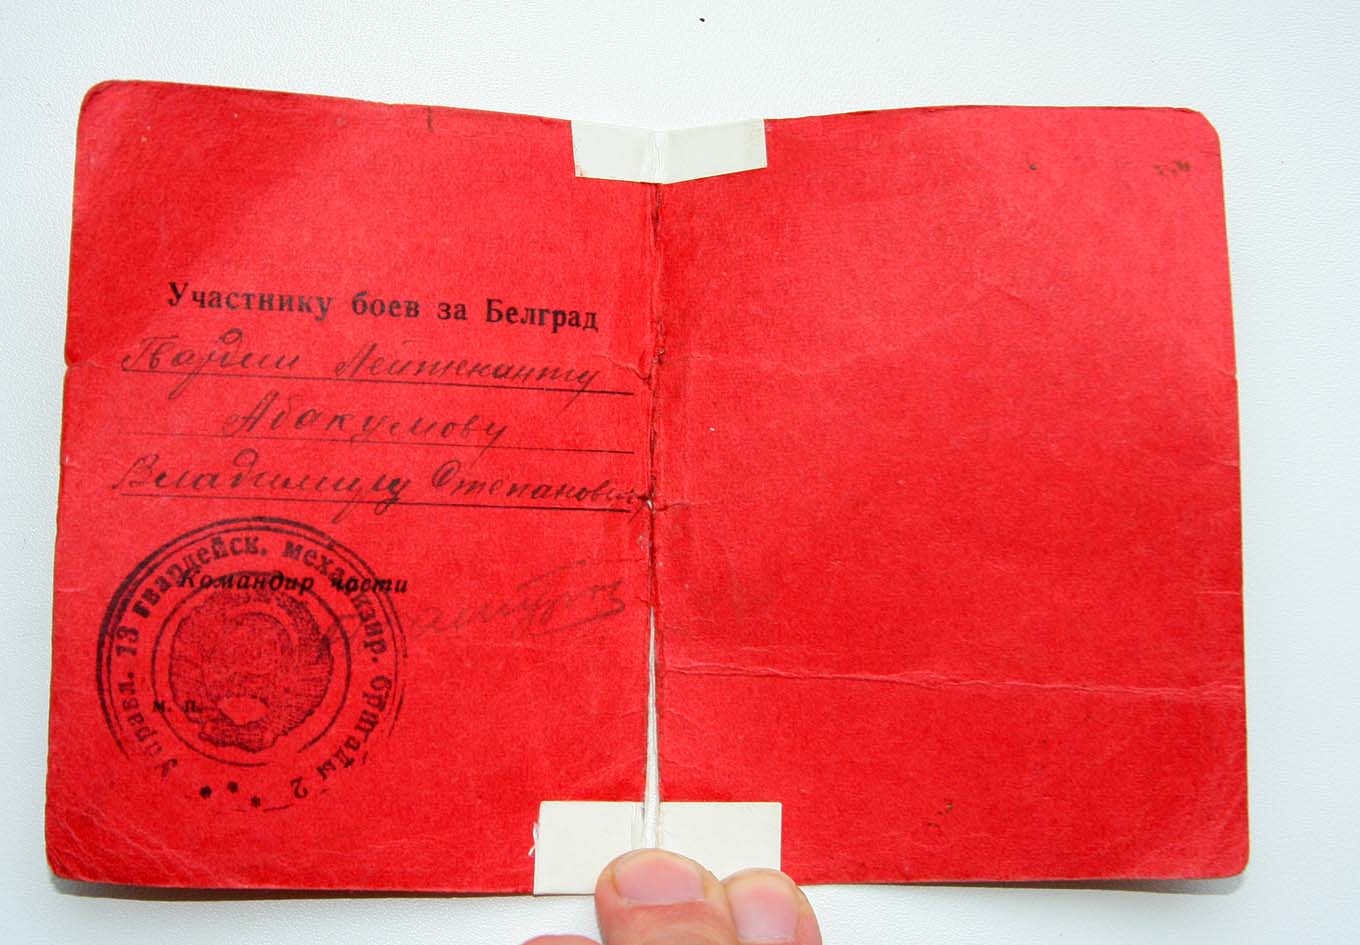 Участнику боев за Белград
Гвардии Лейтенанту
Абакумову
Владимиру Степановичу
Командир части
м. п.
Управл. 13 гвардейск. механизир. бригады 2